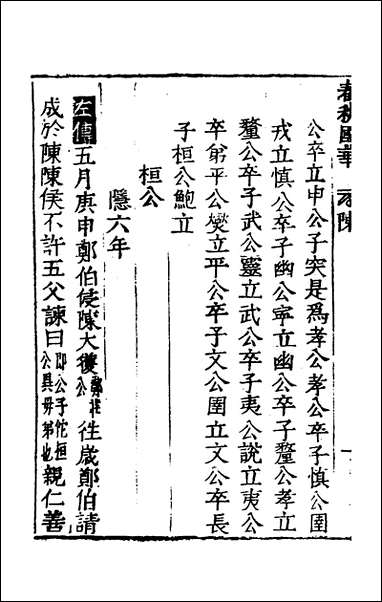 春秋屬辭 陳
公卒立申公子突是爲孝公孝公卒子慎公圉
戎立慎公卒子幽公寧立幽公卒子釐公孝立
釐公卒子武公靈立武公卒子夷公說立夷公
卒弟平公燮立平公卒子文公圉立文公卒長
子桓公鮑立
桓公
隱六年
左傳五月庚申鄭伯侵陳大獲鄭莊公往歲鄭伯請
成於陳陳侯不許五父諫曰即公子佗桓公異母弟也親仁善